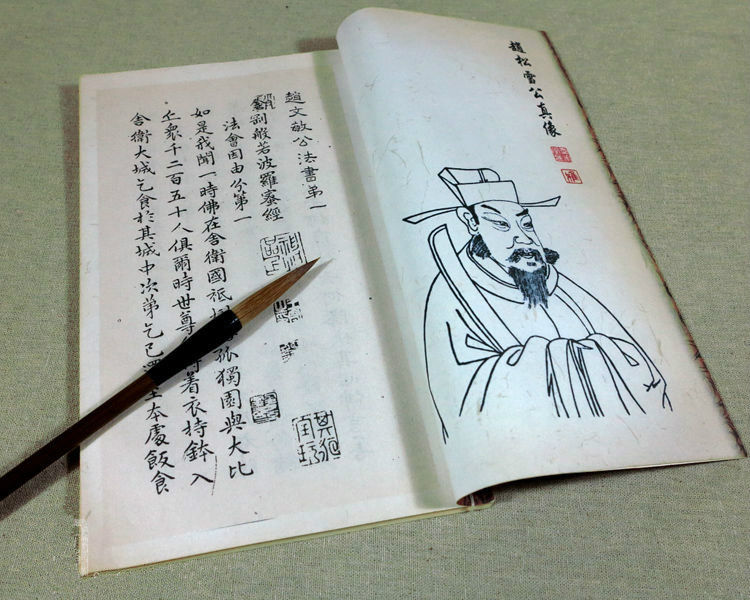 趙松雪公真像
趙文敏公法書第一
金剛般若波羅蜜經
法會因由分第一
如是我聞一時佛在舍衛國祇孤獨園與大比
丘眾千二百五十人俱爾時世尊時着衣持鉢入
舍衛大城乞食於其城中次第乞已還至本處飯食